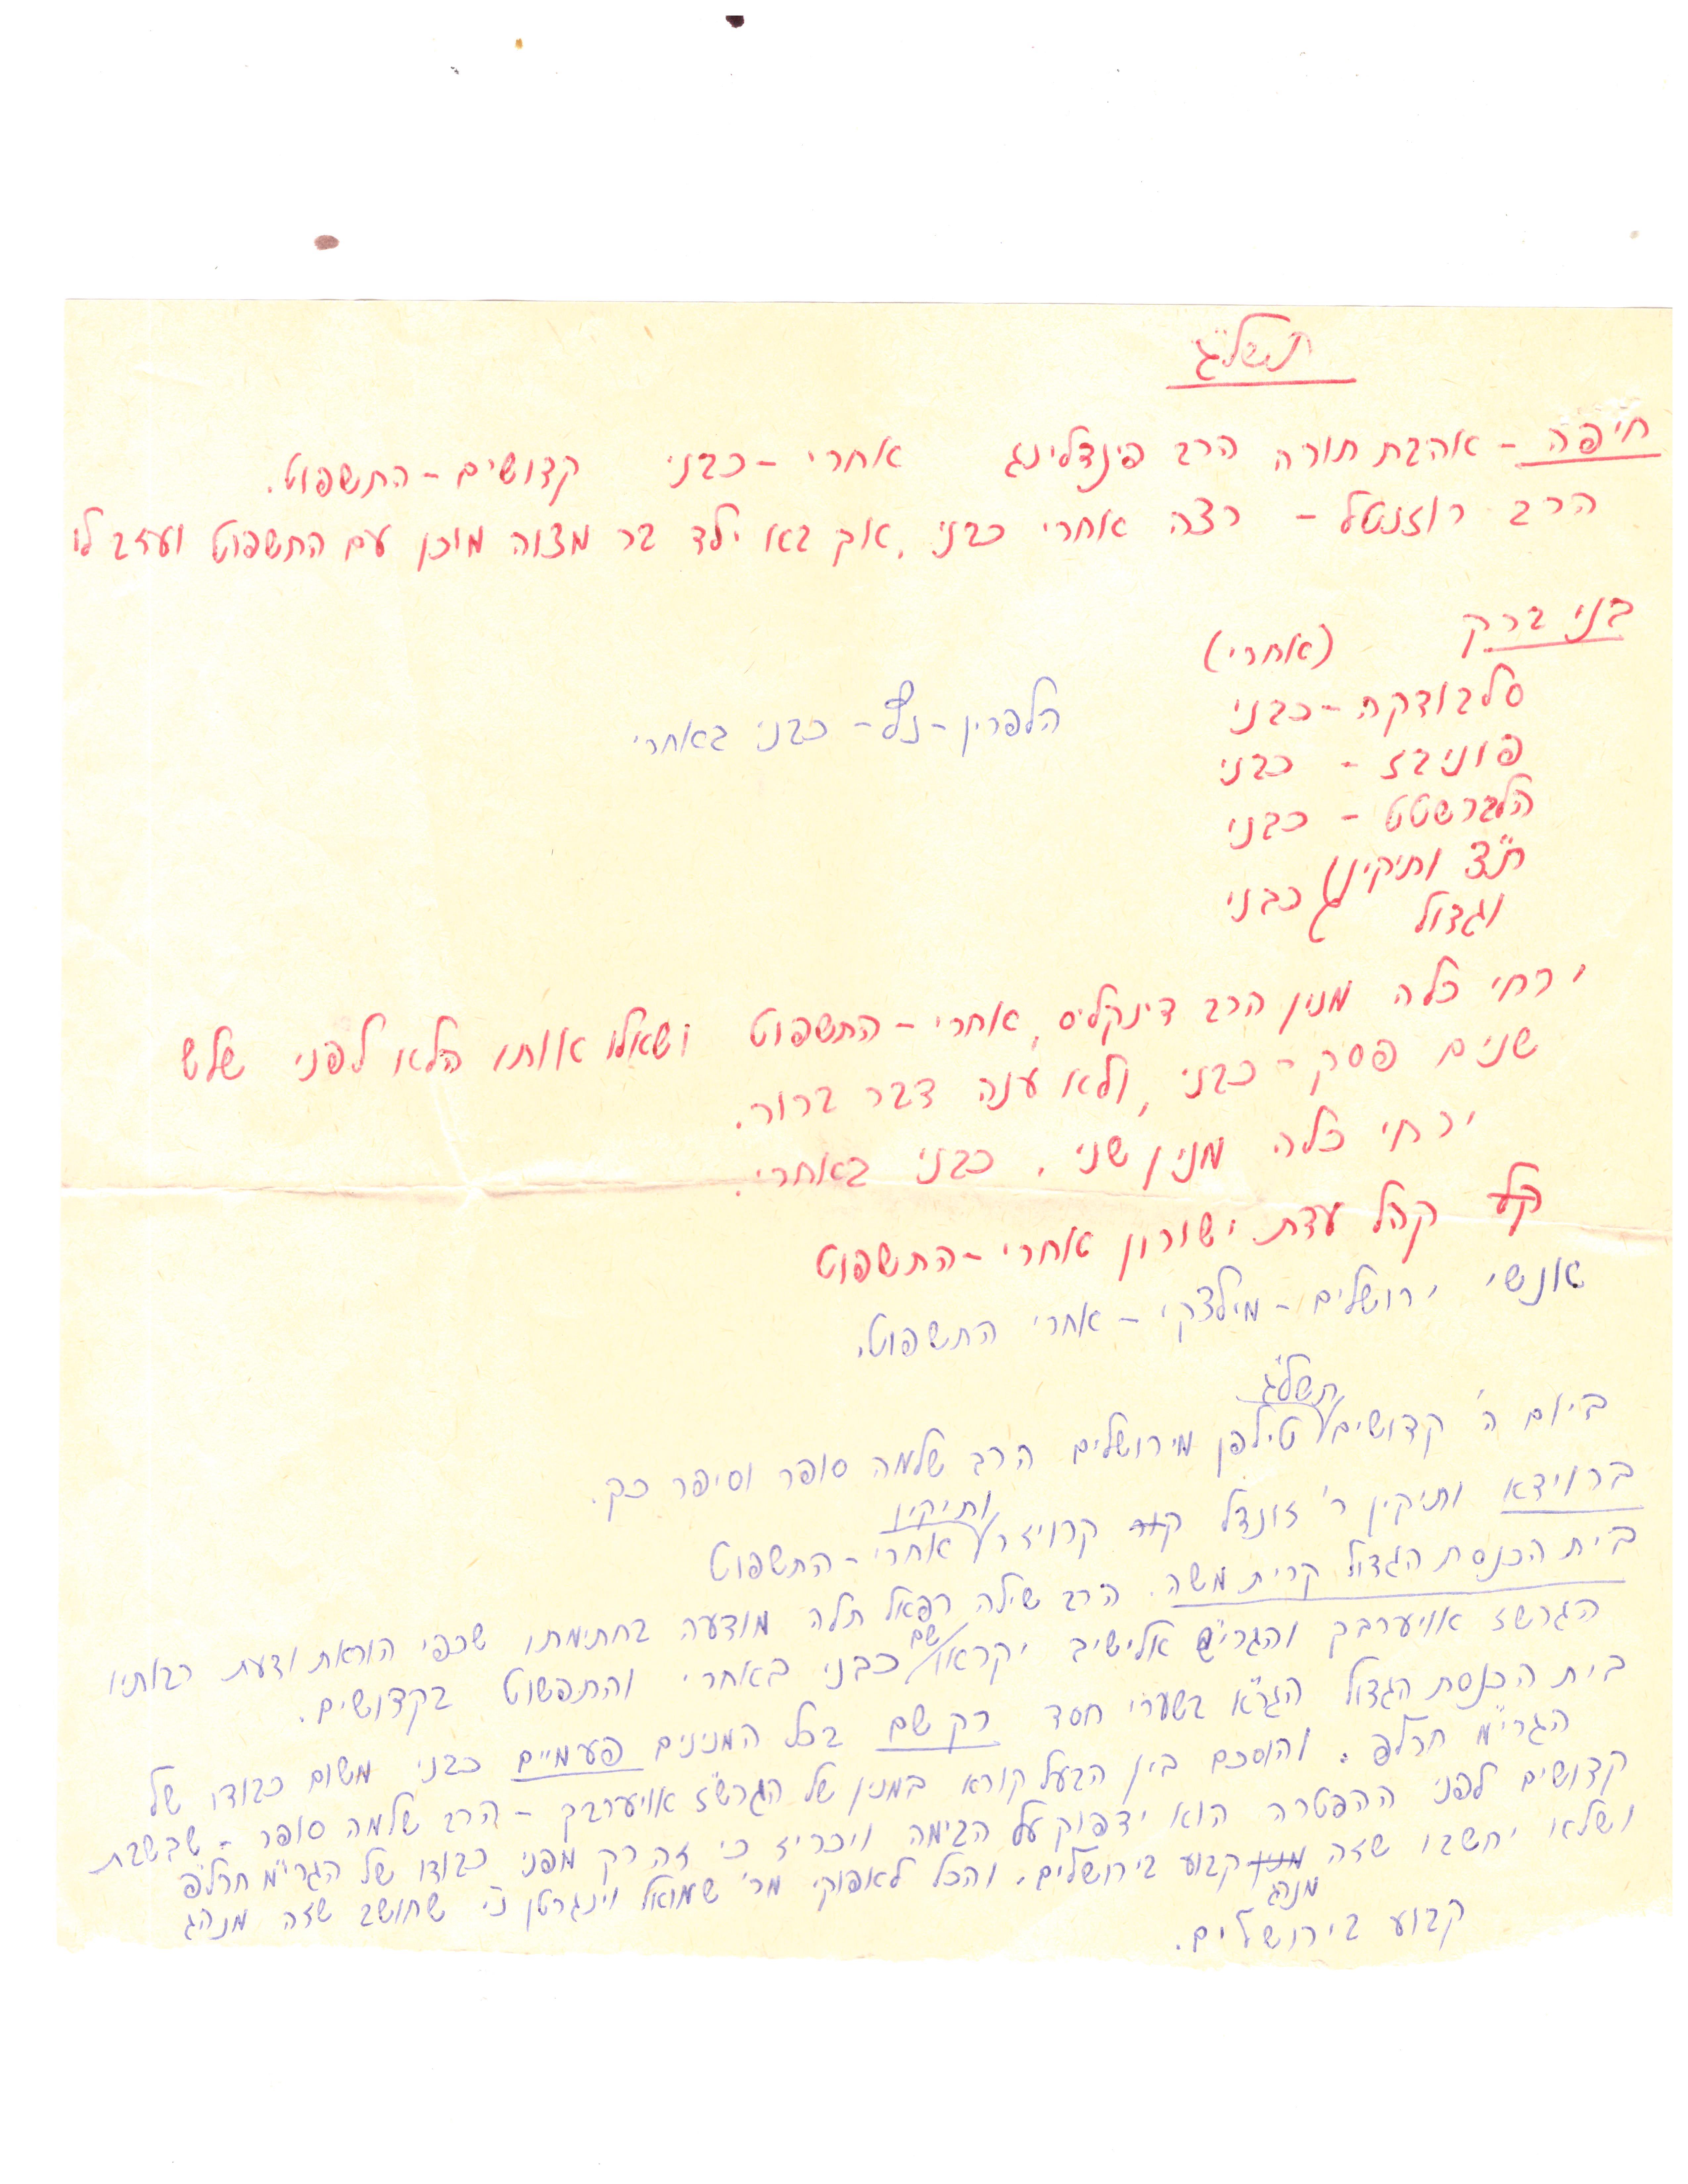 תשל"ג
חיפה - אהבת תורה הרב פינדלינג אחרי - כבני קדושים - התשפוט.
הרב רוזנטל - רצה אחרי כבני, אך בא ילד בר מצוה מוכן עם התשפוט ועזב לו
בני ברק (אחרי)
סלבודקה - כבני
הלפרין - - כבני באחרי
פוניבז - כבני
הלברשטט - כבני
ת"צ ותיקין
וגדול } כבני
ירחי כלה מנין הרב דינקליס, אחרי - התשפוט ושאלו אותו הלא לפני שלש
שנים פסק - כבני, ולא ענה דבר ברור.
ירחי כלה מנין שני. כבני באחרי.
קע קהל עדת ישורון אחרי - התשפוט
אנשי ירושלים - מילצקי - אחרי התשפוט.
תשל"ג
ביום ה' קדושים טילפן מירושלים הרב שלמה סופר וסיפר כך.
ברוידא ותיקין ר' זונדל קרויזר ותיקין אחרי - התשפוט
בית הכנסת הגדול קרית משה. הרב שילה רפאל תלה מודעה בחתימתו שכפי הוראת ודעת רבותיו
הגרשז אויערבך והגרי"ש אלישיב יקראו שם כבני באחרי והתפשוט בקדושים.
בית הכנסת הגדול הגר"א בשערי חסד רק שם בכל המנינים פעמיים כבני משום כבודו של
הגרי"מ חרלפ. והוסכם בין הבעל קורא במנין של הגרש"ז אויערבך - הרב שלמה סופר - שבשבת
קדושים לפני ההפטרה הוא ידפוק על הבימה ויכריז כי זה רק מפני כבודו של הגרי"מ חרל"פ
ושלא יחשבו שזה מנין מנהג קבוע בירושלים. והכל לאפוקי מר' שמואל וינגרטן ני' שחושב שזה מנהג
קבוע בירושלים.